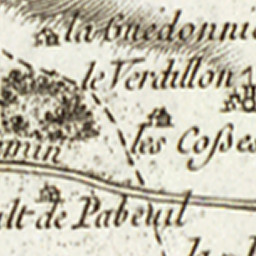 la Guedonni
le Verdillon
les Coſses
min
ult de Pabeuil